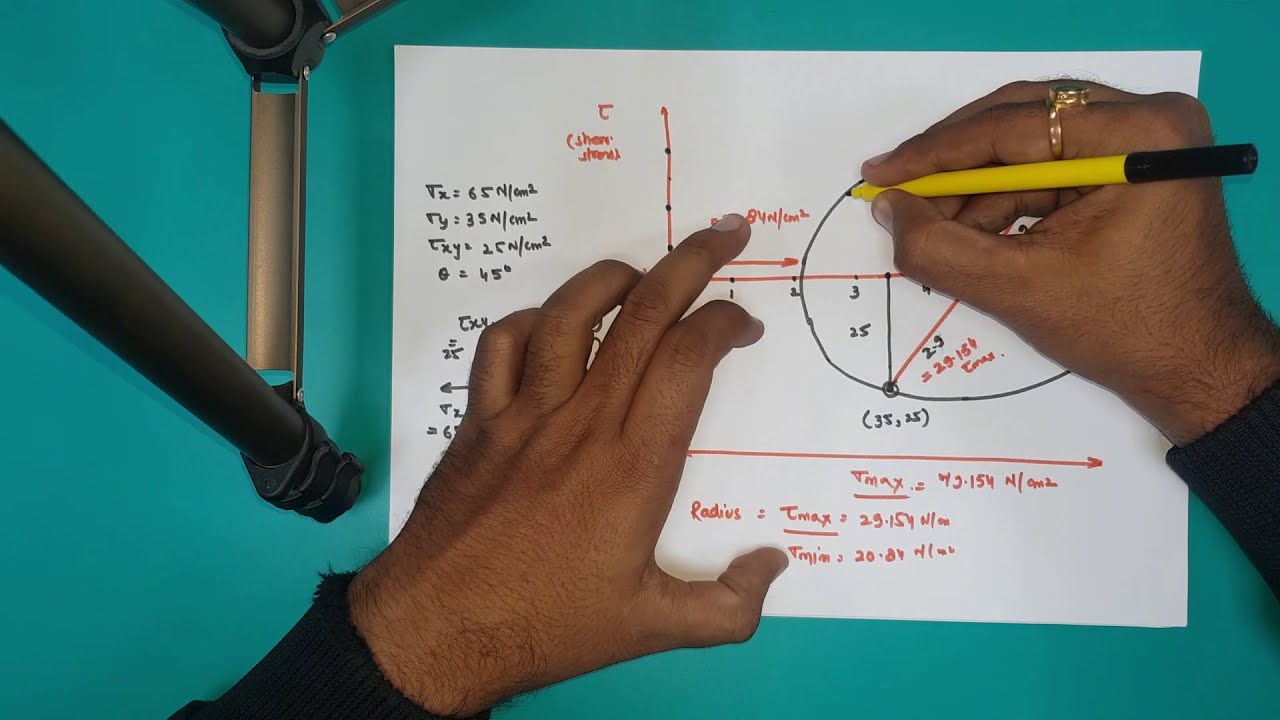 τ
(shear
stress)
σx = 65 N/cm²
σy = 35 N/cm²
τxy = 25 N/cm²
θ = 45°
84 N/cm²
1 2 3 4
25
2.9
= 29.154
τmax.
τxy
=
25
σx
(35, 25)
σmax = 79.154 N/cm²
Radius = τmax = 29.154 N/m
σmin = 20.84 N/m²